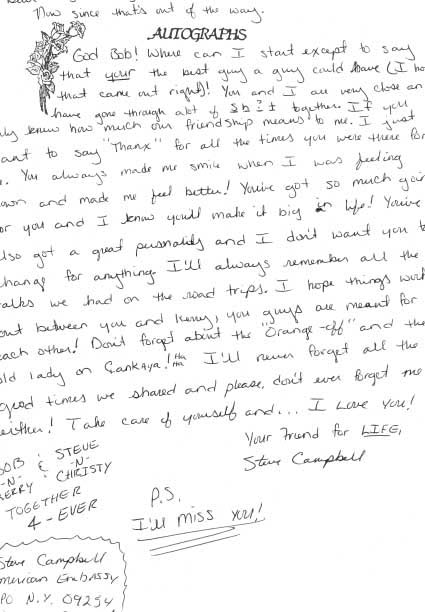 Now since that's out of the way.
AUTOGRAPHS
God Bob! Where can I start except to say
that your the best guy a guy could have (I ho
that came out right)! You and I are very close an
have gone through alot of Sh?t together. If you
ly knew how much our friendship means to me. I just
ant to say "Thanx" for all the times you were there for
. You always made me smile when I was feeling
own and made me feel better! You've got so much goin
or you and I know you'll make it big in life! You've
lso got a great personality and I don't want you t
change for anything. I'll always remember all the
talks we had on the road trips. I hope things work
out between you and Kerry, you guys are meant for
each other! Don't forget about the "Orange-off" and the
old lady on Cankaya! Ha Ha I'll never forget all the
good times we shared and please, don't ever forget me
either! Take care of yourself and... I Love you!
Your Friend for LIFE,
Steve Campbell
BOB & STEVE
-N- -N-
KERRY & CHRISTY
TOGETHER
4-EVER
P.S.
I'll miss you!
Steve Campbell
American Embassy
PO N.Y. 09254